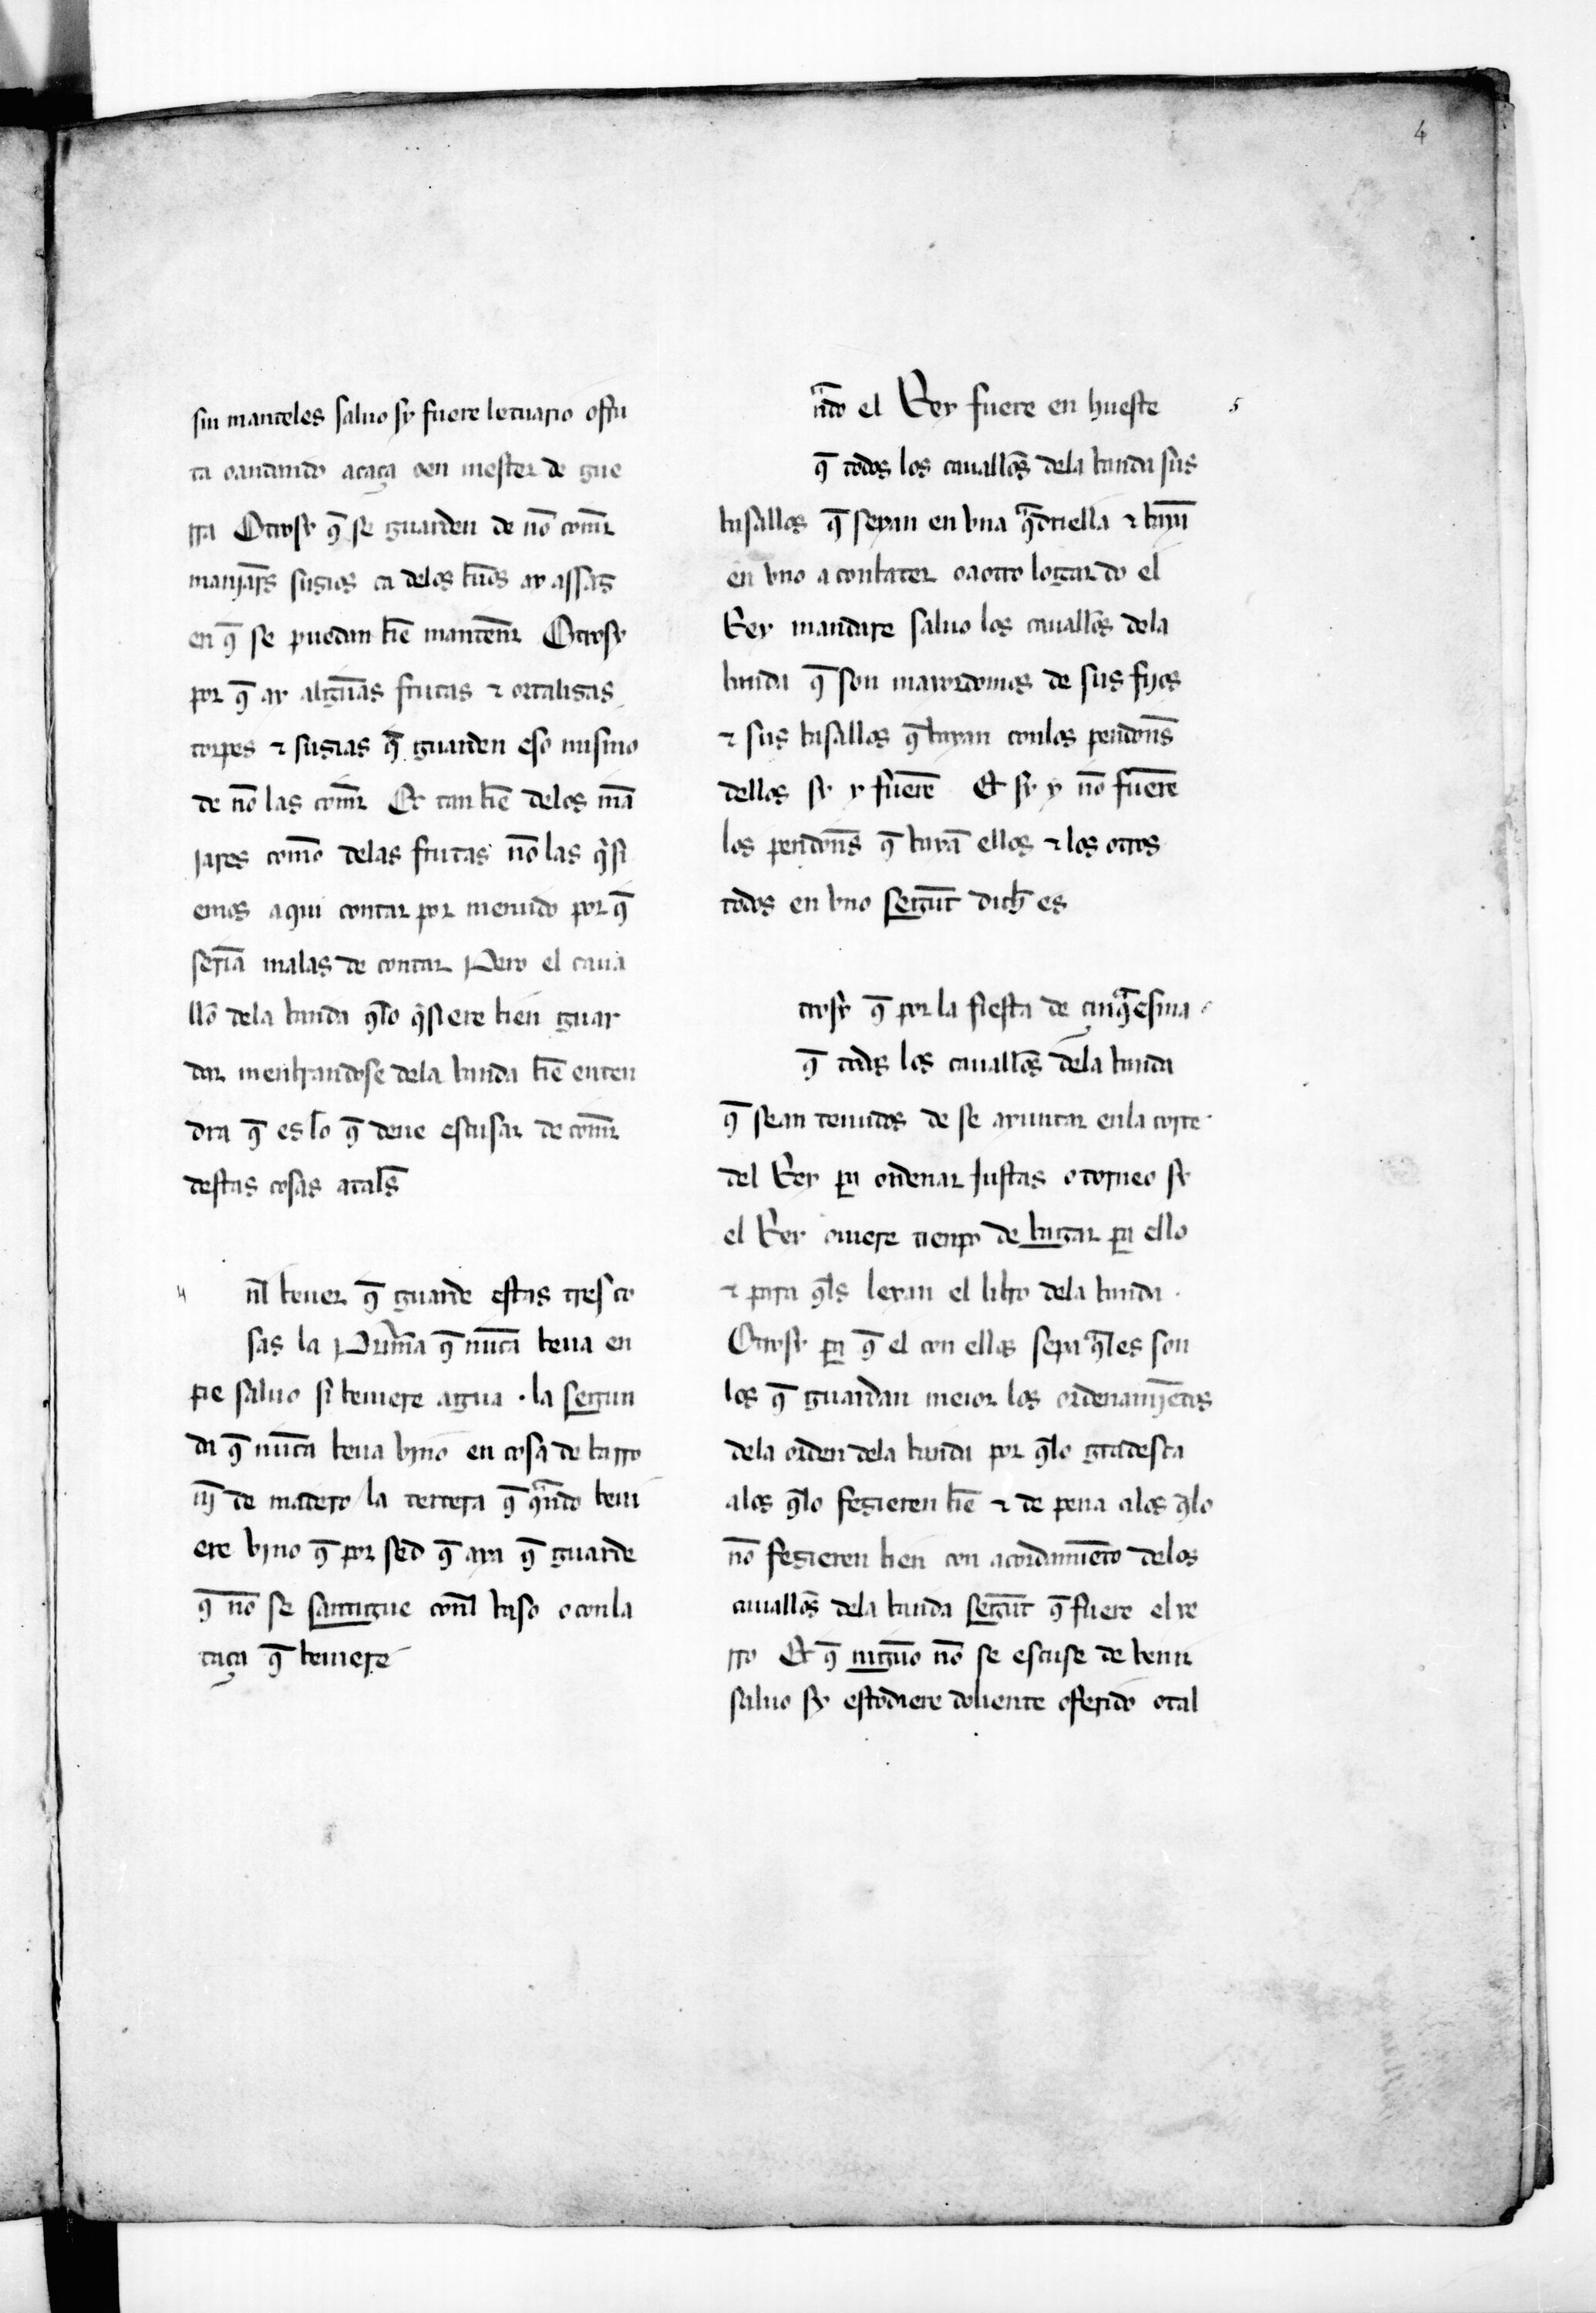 4
sin manteles saluo sy fuere letuario o fru
ta o andando a caça o en mester de gue
rra Otrosy q̃ se guarden de nõ com̃r
maniar̃s susios ca delos bũos ay assas
en q̃ se puedan biẽ manten̄r Otrosy
por q̃ ay algũas frutas ⁊ ortalisas
torpes ⁊ susias q̃ guarden eso mismo
de nõ las com̃r Et tan biẽ delos mã
jares com̃o delas frutas nõ las q̃si
emos aqui contar por menudo por q̃
seriã malas de contar Pero el caua
llõ dela banda q̃lo q̃siere bien guar
dar menbrandose dela banda biẽ enten
dra q̃ es lo q̃ deue escusar de com̃r
destas cosas atal̃s
4
nl̃ beuer q̃ guarde estas tres co
sas la Prim̃a q̃ nũca beua en
pie saluo si beuiere agua · la segun
da q̃ nũca beua vino en cosa de barro
nĩ de madero la tercera q̃ q̃ndo beui
ere vino q̃ por sed q̃ aya q̃ guarde
q̃ nõ se santigue conl̃ baso o con la
taça q̃ beuiere
ñdo el Rey fuere en hueste
5
q̃ todos los cauallõs dela banda sus
basallos q̃ seyan en vna q̃driella ⁊ bayñ
en vno a conbater o a otro logar do el
Rey mandare saluo los cauallõs dela
banda q̃ son mayordomos de sus fijos
⁊ sus basallos q̃ bayan conlos pendon̄s
dellos sy y fuerẽ Et sy y nõ fuerẽ
los pendon̄s q̃ bayã ellos ⁊ los otros
todos en vno segũt dich̃ es
trosy q̃ por la fiesta de çinq̃esma
q̃ todos los cauallõs dela banda
q̃ sean tenudos de se ayuntar en la corte
del Rey p̱a ordenar Justas o torneo sy
el Rey ouiere tienpo de bagar p̱a ello
⁊ para q̃les leyan el libro dela banda ·
Otrosy p̱a q̃ el con ellos sepa q̃les son
los q̃ guardan meior los ordenamiẽtos
dela orden dela banda por q̃lo gradesca
alos q̃lo fezieren biẽ ⁊ de pena alos q̃lo
nõ fezieren bien con acordamiẽto delos
cauallõs dela banda segũt q̃ fuere el ye
rro Et q̃ nigũo nõ se escuse de benir
saluo sy estodiere doliente o ferido o tal